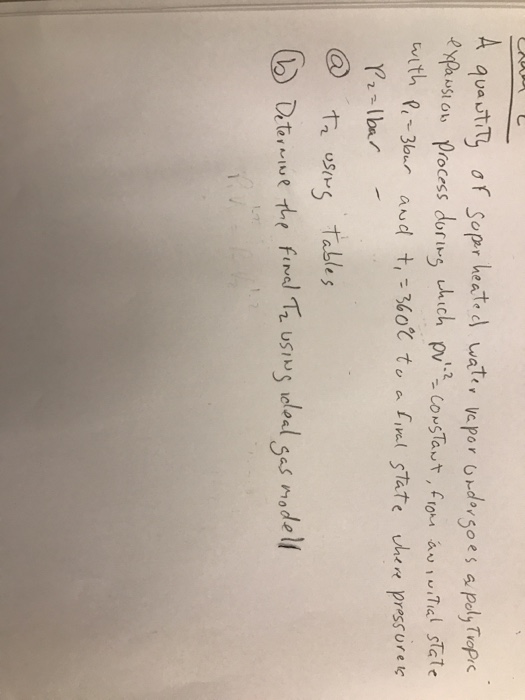 A quantity of superheated water vapor undergoes a polytropic
expansion process during which pv^1.2 = constant, from an initial state
with P₁ = 3bar and t₁ = 360°C to a final state where pressure is
P₂ = 1bar -
ⓐ T₂ using tables
ⓑ Determine the final T₂ using ideal gas modell